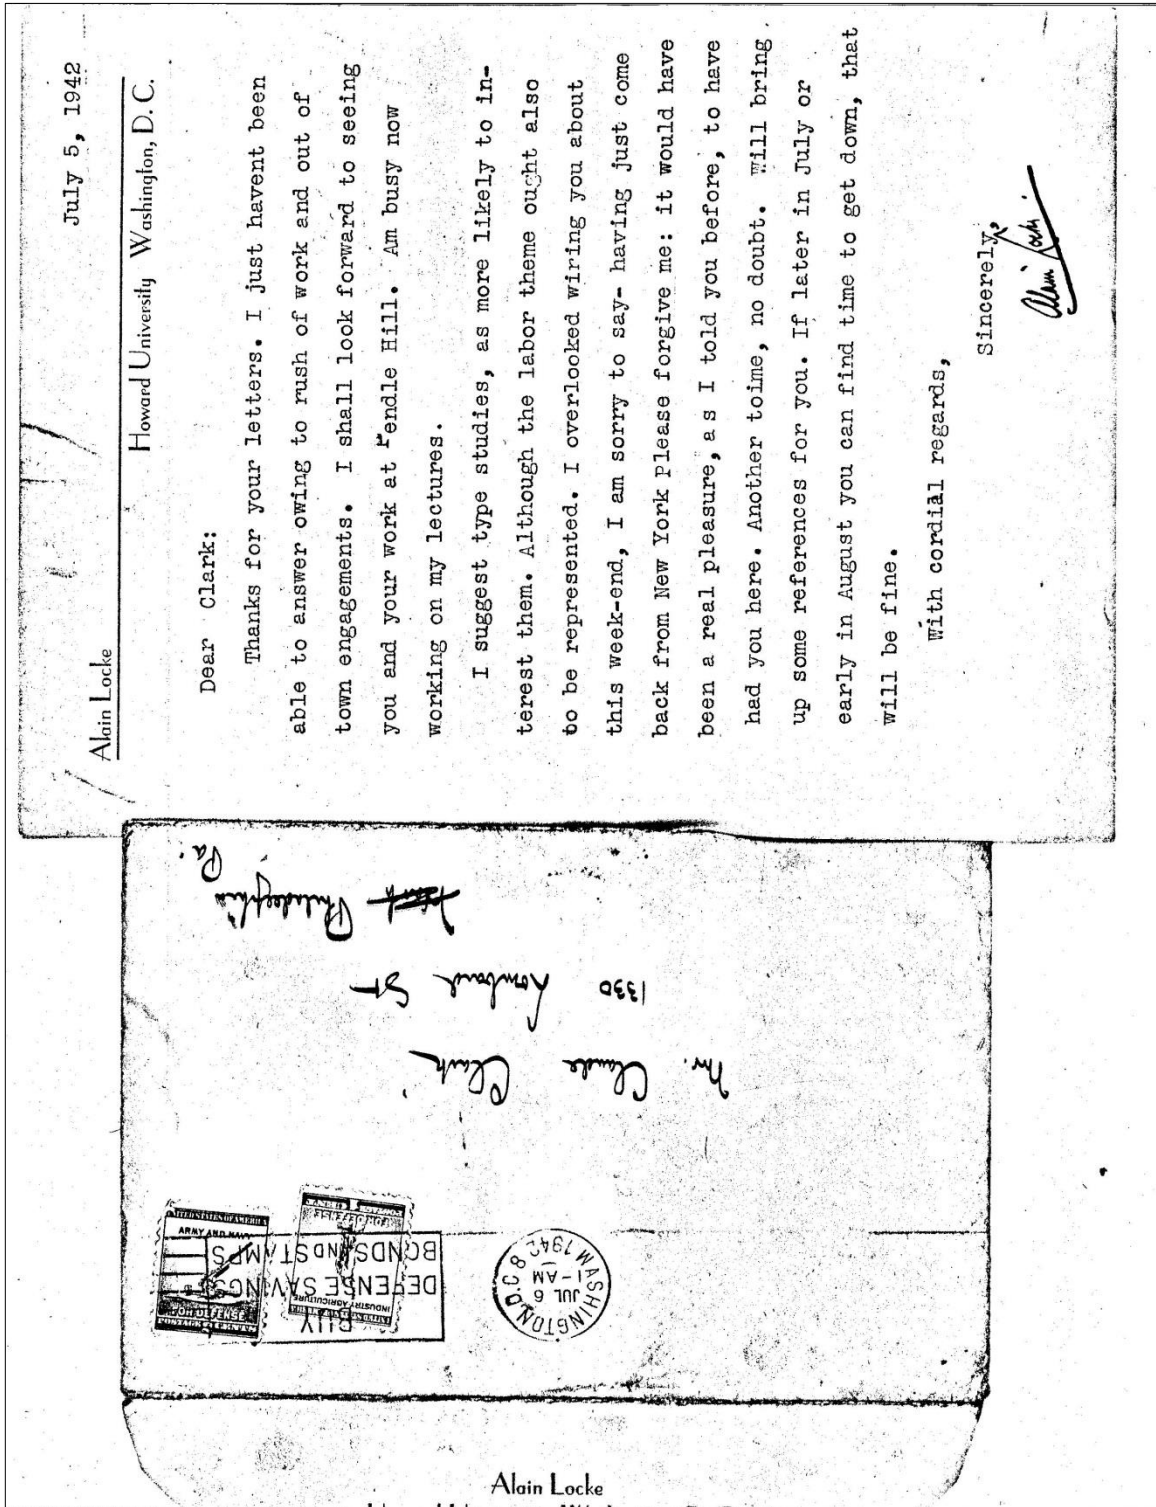 July 5, 1942
Alain Locke
Howard University Washington, D.C.
Dear Clark:
Thanks for your letters. I just havent been
able to answer owing to rush of work and out of
town engagements. I shall look forward to seeing
you and your work at Pendle Hill. Am busy now
working on my lectures.
I suggest type studies, as more likely to in-
terest them. Although the labor theme ought also
to be represented. I overlooked wiring you about
this week-end, I am sorry to say- having just come
back from New York Please forgive me: it would have
been a real pleasure, as I told you before, to have
had you here. Another toime, no doubt. Will bring
up some references for you. If later in July or
early in August you can find time to get down, that
will be fine.
With cordial regards,
Sincerely,
Alain Locke
Mr. Claude Clark
1330 Lombard St
Philadelphia
Pa.
WASHINGTON, D.C. 8
JUL 6
1-AM
1942
BUY
DEFENSE SAVINGS
BONDS AND STAMPS
UNITED STATES OF AMERICA
ARMY AND NAVY
FOR DEFENSE
INDUSTRY AGRICULTURE
FOR DEFENSE
Alain Locke